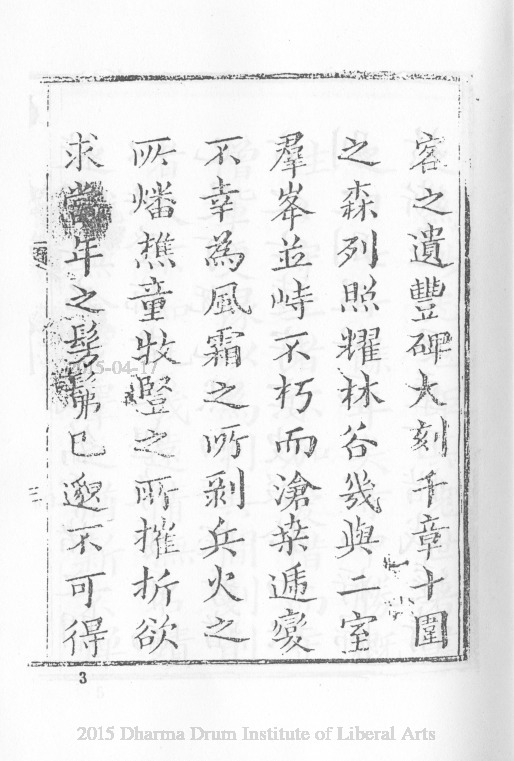 客之遺豐碑大刻千章十圍
之森列照耀林谷幾與二室
羣峯並峙不朽而滄桒遞變
不幸為風霜之所剝兵火之
所燔樵童牧豎之所摧折欲
求當年之髣髴已邈不可得
三
3
2015-04-17
2015 Dharma Drum Institute of Liberal Arts